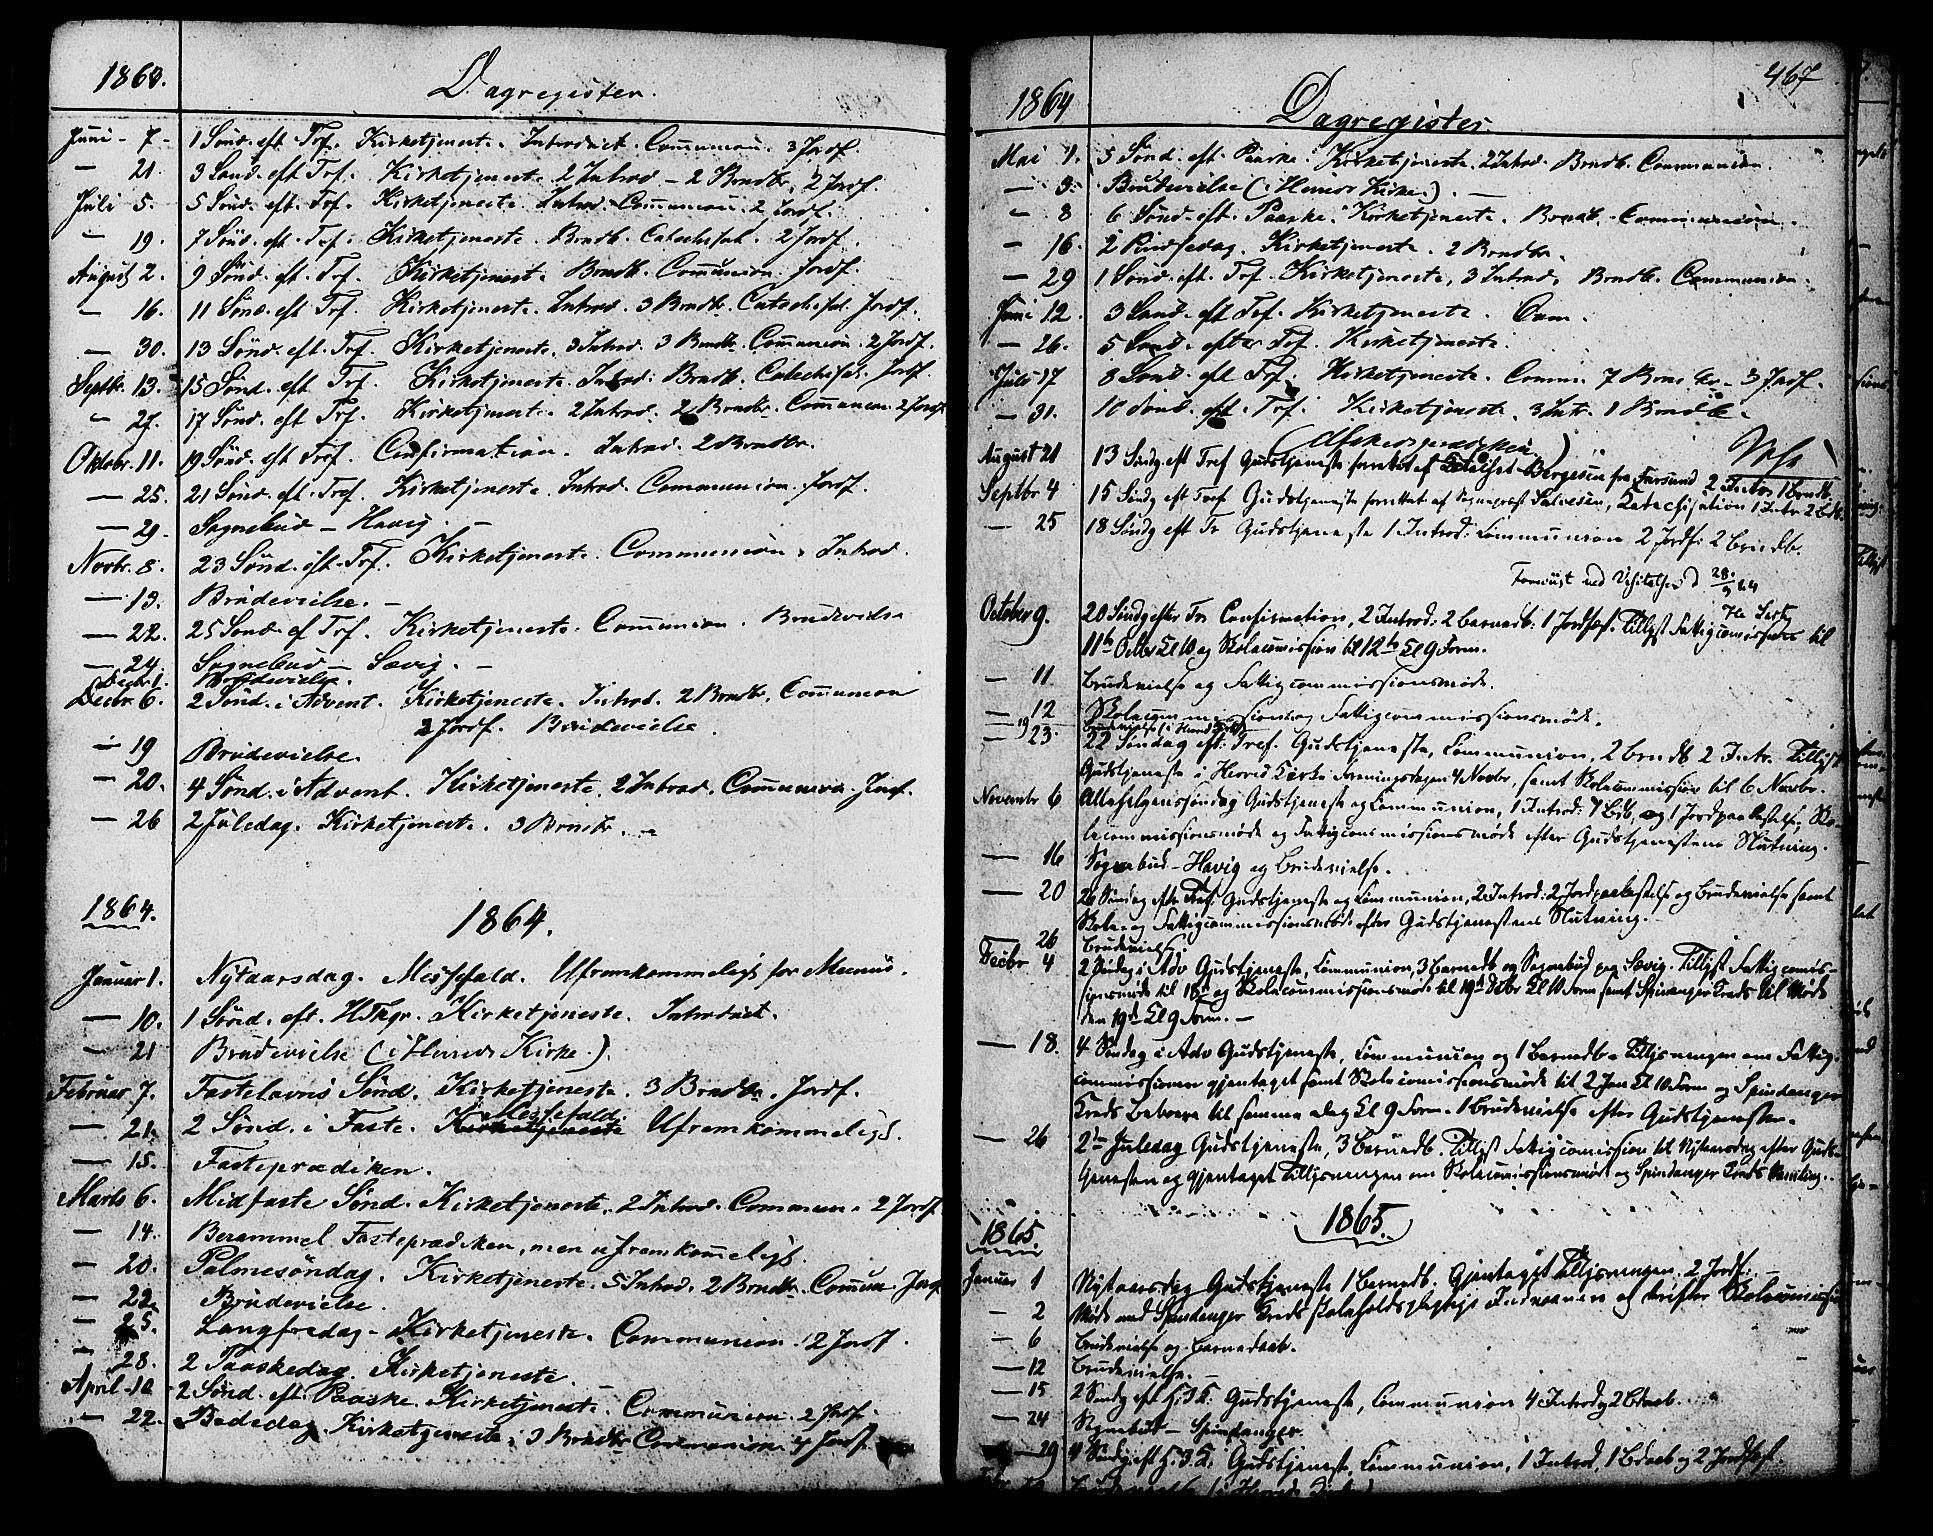 1863.
Dagregister.
Juni - 7 - 1 Sönd. eft. Tref. Kirketjeneste. Introduct. Communion. 3 Jordf.
— 21. 3 Sönd. eft Tref. Kirketjeneste 2 Introd - 2 Brndb. 2 Jordf.
Juli 5. 5 Sönd. eft. Tref. Kirketjeneste. Introd. Communion. 2 Jordf.
— 19. 7 Sönd. eft. Tref. Kirketjeneste. Brndb. Catechisat. 2 Jordf.
August 2. 9 Sönd. eft. Tref. Kirketjeneste. Brndb. Communion. Jordf.
— 16. 11 Sönd. eft Tref. Kirketjeneste. Introd. 3 Brndb. Catechisat. Jordf.
— 30. 13 Sönd. eft. Tref. Kirketjeneste. 3 Introd. 3 Brndb. Communion. 2 Jordf.
Septbr. 13. 15 Sönd. eft Tref. Kirketjeneste. Introd. Brndb. Catechisat. Jordf.
— 27. 17 Sönd. eft Tref. Kirketjeneste. 2 Introd. 2 Brndb. Communion. 2 Jordf
Oktobr. 11. 19 Sönd. eft Tref. Confirmation. Introd. 2 Brndbr.
— 25. 21 Sönd. eft. Tref. Kirketjeneste. Introd. Communion. Jordf.
— 29. Sognebud — Havig. —
Novbr. 8. 23 Sönd. eft. Tref. Kirketjeneste. Communion. Introd.
— 13. Brudevielse. —
— 22. 25 Sönd. ef Tref. Kirketjeneste. Communion. Brudevielse
— 24. Sognebud — Sævig. —
Decbr. 1. Brudevielse.
Decbr. 6. 2 Sönd. i Advent. Kirketjeneste. Introd. 2 Brndbr. Communion
2 Jordf. Brudevielse.
— 19 Brudevielse.
— 20. 4 Sönd. i Advent. Kirketjeneste. 2 Introd. Communion. Jordf.
— 26 2 Juledag. Kirketjeneste. 3 Brndbr. —
1864. 1864.
Januar 1. Nytaarsdag. Messefald. Ufremkommeligt for
— 10. 1 Sönd. eft. H.Tkgr. Kirketjeneste. Introduct.
— 21 Brudevielse (i Herreds Kirke).
Februar 7. Fastelavns Sönd. Kirketjeneste. 3 Brndbr. Jordf.
— 21. 2 Sönd. i Faste. Kirketjeneste Messefald. Ufremkommeligt.
— 15. Fasteprædiken.
Marts 6. Midfaste Sönd. Kirketjeneste. 2 Introd. Commun. 2 Jordf
— 14. Berammet Fasteprædiken, men ufremkommeligt.
— 20. Palmesöndag. Kirketjeneste. 5 Introd. 2 Brndbr. Commun. Jordf
— 22. Brudevielse.
— 25. Langfredag - Kirketjeneste. Communion. 2 Jordf.
— 28. 2 Paaskedag. Kirketjeneste.
April 10 2 Sönd. eft. Paaske. Kirketjeneste. Communion. 2 Jordf.
— 22. Bededag. Kirketjeneste. 3 Brndbr Communion 4 Jordf.
467
1864
Dagregister.
Mai 1. 5 Sönd. eft. Paaske. Kirketjeneste. 2 Introd. Brndb. Communion.
— 3. Brudevielse (i Herreds Kirke). —
— 8 6 Sönd. eft. Paaske. Kirketjeneste. Brndb. Communion.
— 16. 2 Pindsedag. Kirketjeneste. 2 Brndbr.
— 29 1 Sönd. eft. Tref. Kirketjeneste, 3 Introd. Brndb. Communion.
Juni 12. 3 Sönd. eft Tref. Kirketjeneste. Com.
— 26. 5 Sönd. efter Tref. Kirketjeneste.
Juli 17 8 Sönd. eft Tref. Kirketjeneste. Comm. 7 3 Jordf.
— 31. 10 Sönd. eft. Tref. Kirketjeneste. 3 Intr. 1 Brndb.
(Afskedsprædiken)
August 21 13 Söndg eft Tref Gudstjeneste forrettet af Bergesen fra Farsund 2 Introd 1 Brndb.
Septbr 4 15 Söndg eft Tref Gudstjeneste forrettet af Sognepræst Salvesen, Katechisation 1 Intr 2 Bdb.
— 25 18 Söndg eft Tr Gudstjeneste 1 Introd: Communion 2 Jordf: 2 Brndb.
28/9 64
October 9. 20 Söndg efter Tr Confirmation, 2 Introd: 2 Barnedb: 1 Jordfæst. Tillyst Fattigcomission til
11te Octbr Kl 10 og Skolecomission til 12te Kl 9 Form.
— 11 Brudevielse og Fattigcommissionsmöde.
— 12 Skolecommissions og Fattigcommissionsmöde.
— 19
— 23. 22 Söndag eft: Tref. Gudstjeneste, Communion, 2 Brndb 2 Intr. Tillyst
Gudstjeneste i Herred Kirke Foreningsdagen 4 Novbr. samt Skolecommission til 6 Novbr.
Novembr 6 Allehelgenssöndag Gudstjeneste og Communion, 1 Introd: 4 Bdb. og 1 Jordpaakastelse, Sko-
lecommissionsmöde og Fattigcommissionsmöde efter Gudstjenestens Slutning.
— 16 Sognebud - Havig og Brudevielse.
— 20 26 Söndag efter Tref. Gudstjeneste og Communion, 2 Introd: 2 Jordpaakastelse og Brudevielse samt
Skole- og Fattigcommissionsmöde efter Gudstjenestens Slutning.
— 26 Brudevielse.
Decbr 4 2 Söndag i Adv Gudstjeneste, Communion, 3 Barnedb og Sognebud paa Sævig. Tillyst Fattigcomis-
sionsmöde til 18de og Skolecommissionsmöde til 19de Decbr Kl 10 Form samt Spindanger Kreds til Möde
den 19de Kl 9 Form. —
— 18. 4 Söndag i Adv Gudstjeneste, Communion og 1 Barnedb. Tillysningen om Fattig-
commissionen gjentaget samt Skolecomissionsmöde til 2 Jan Kl 10 Form og Spindanger
Kreds Beboere til samme Dag Kl 9 Form. 1 Brudevielse efter Gudstjenesten.
— 26 2den Juledag Gudstjeneste, 3 Barnedb. Tillyst Fattigcomission til Nytaarsdag efter Guds-
tjenesten og gjentaget Tillysningen om Skolecomissionsmödet og Spindanger Kreds Samling.
1865 1865.
Januar 1 Nytaarsdag Gudstjeneste 1 Barnedb. Gjentaget Tillysningen. 2 Jordf: —
— 2 Möde med Spindanger Kreds Skolecomission
— 6 Brudevielse og Barnedaab.
— 12 Brudevielse. —
— 15 2 Söndg eft H.3.K. Gudstjeneste, Communion 4 Introd, 2 Bdaab.
— 24 Sognebud — Spindanger.
— 29 4 Söndg eft H.3.K. Gudstjeneste, Communion, 1 Introd, 1 Bdaab og 2 Jordfæst.